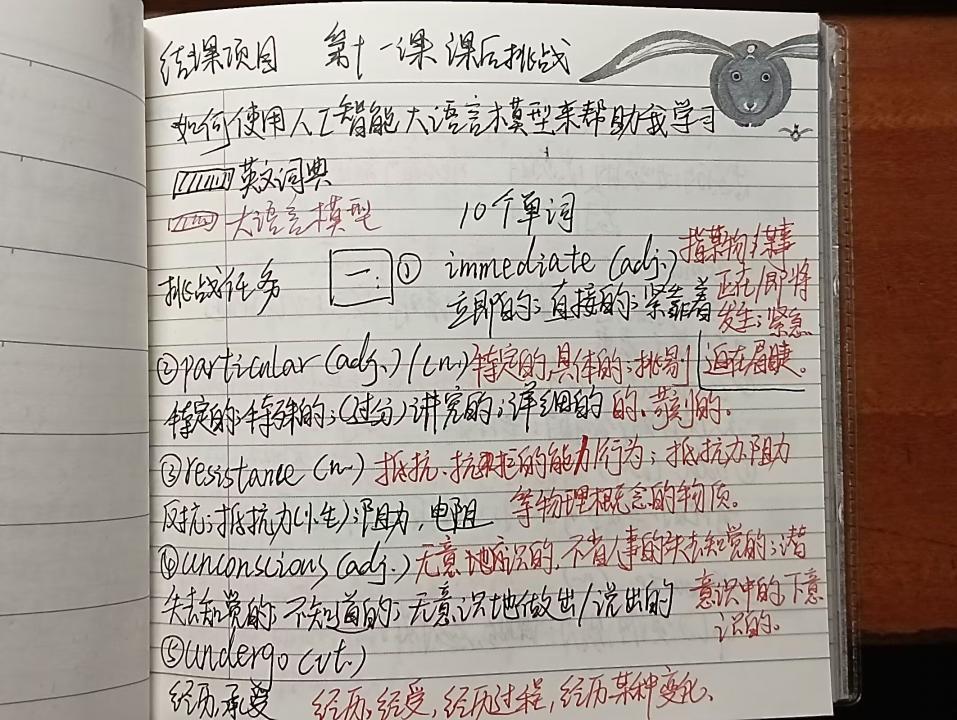 结课项目 第十一课 课后挑战
如何使用人工智能大语言模型来帮助我学习
英文词典
大语言模型 10个单词
挑战任务 一: ① immediate (adj.) 指某物/某事
立即的; 直接的; 紧靠着 正在/即将
发生; 紧急
②particular (adj.) / (n.) 特定的,具体的; 挑剔 迫在眉睫。
特定的;特殊的;(过分)讲究的;详细的 的、苛刻的。
③resistance (n.) 抵抗、抗拒的能力/行为; 抵抗力.阻力
反抗;抵抗力(小生);阻力,电阻 等物理概念的物质。
④unconscious (adj.) 无意地识的,不省人事的失去知觉的;潜
失去知觉的; 不知道的; 无意识地做出/说出的 意识中的,下意
识的。
⑤undergo (vt.)
经历,承受 经历,经受,经历过程,经历某种变化.